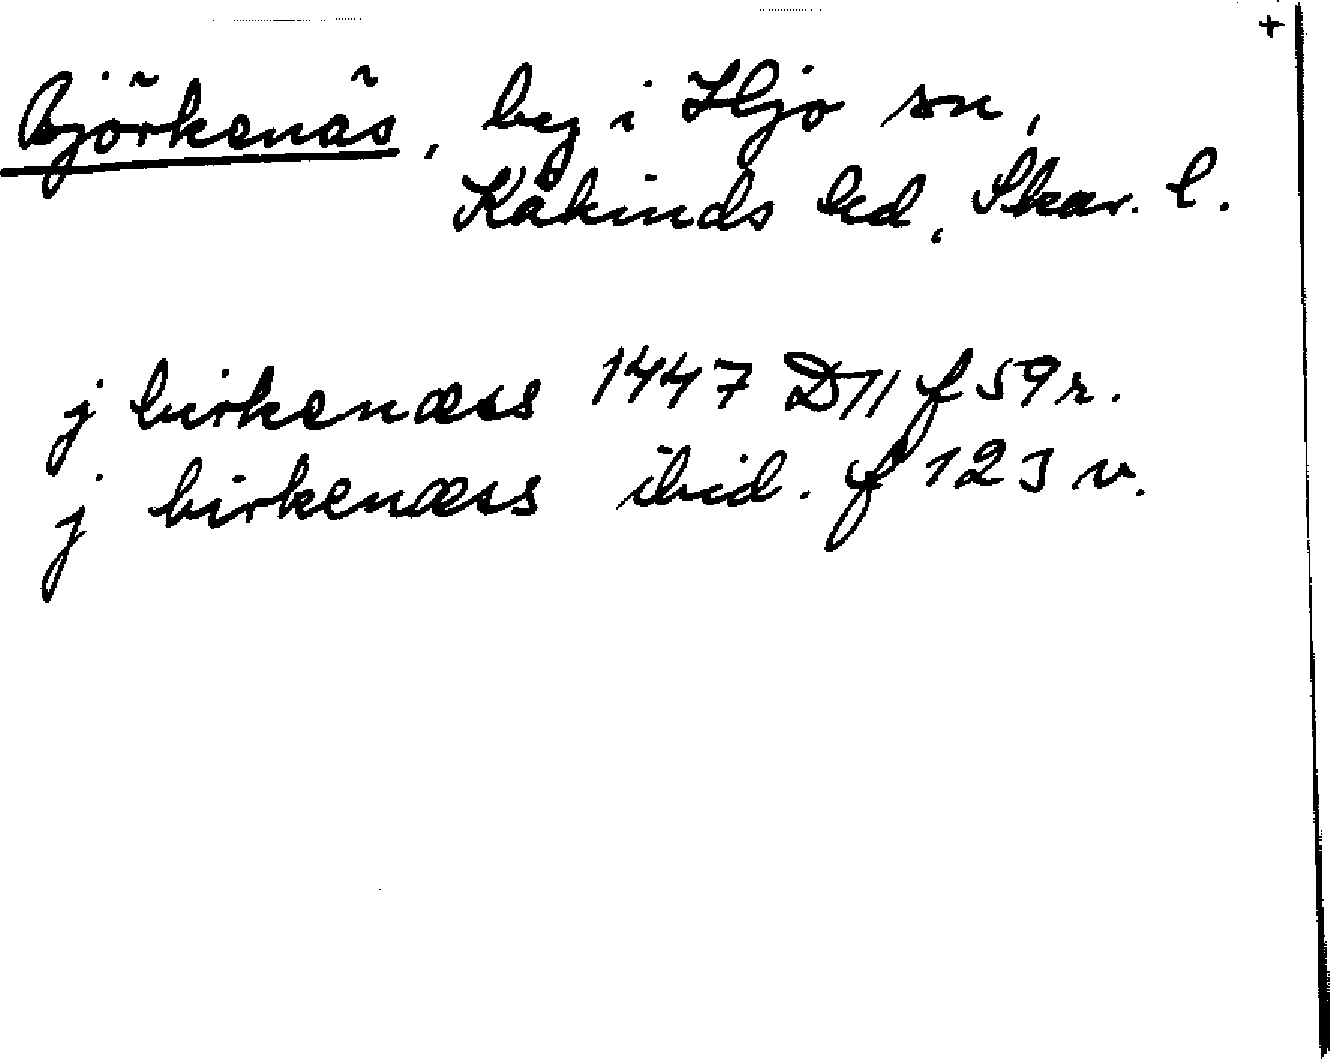 +
Björkenäs, by i Hjo sn,
Kåkinds hd, Skar. l.
j birkenæss 1447 D11 f 59r.
j birkenæss ibid. f 123 v.